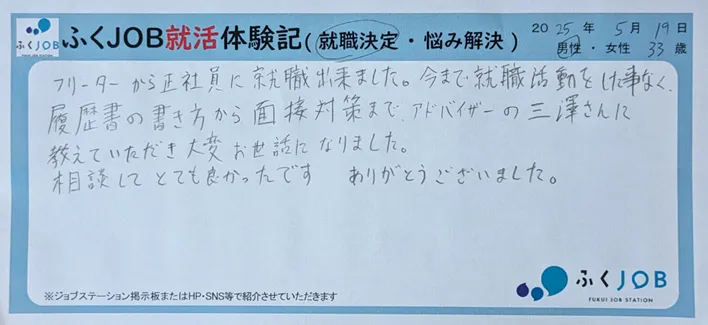 ふくJOB
ふくJOB就活体験記(就職決定・悩み解決)
2025年5月19日
男性・女性 33歳
フリーターから正社員に就職出来ました。今まで就職活動をした事なく、
履歴書の書き方から面接対策まで、アドバイザーの三澤さんに
教えていただき大変お世話になりました。
相談してとても良かったです ありがとうございました。
※ジョブステーション掲示板またはHP・SNS等で紹介させていただきます
ふくJOB
FUKUI JOB STATION